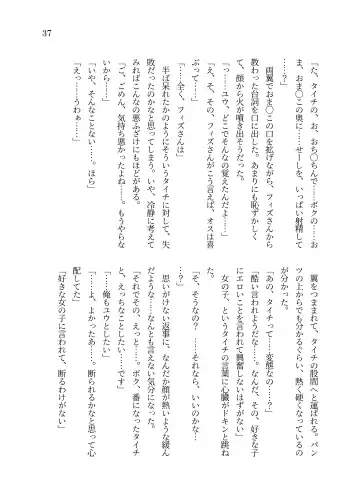 37
「た、タイチの、お、おち〇ちんで……ボクの……お
ま、おま〇この奥に……せーしを、いっぱい射精して
……?」
　両翼でおま〇この口を拡げながら、フィズさんから
教わった台詞を口に出した。あまりにも恥ずかしく
て、顔から火が噴き出そうだった。
「……っユウ、どこでそんなの覚えたんだよ……」
「え、そ、その、フィズさんがこう言えば、オスは喜
ぶって……」
「……全く、フィズさんは」
　半ば呆れたかのようにそういうタイチに対して、失
敗だったのかなと思ってしまう。いや、冷静に考えて
みればこんなの悪ふざけにもほどがある。
「ご、ごめん、気持ち悪かったよね……。もうやらな
いから……」
「いや、そんなことない……。ほら」
「えっ……うわぁ……」
　翼をつままれて、タイチの股間へと運ばれる。パン
ツの上からでも分かるぐらい、熱く硬くなっているの
が分かった。
「あの、タイチって……変態なの……?」
「酷い言われようだな……。なんだ、その、好きな子
にエロいこと言われて興奮しないはずがない」
　女の子、というタイチの言葉に心臓がドキンと跳ね
た。
「そ、そうなの?　……それなら、いいのかな…
…?」
　思いがけない返事に、なんだか顔が熱いような緩ん
だような……なんとも言えない気分になった。
「それでその、えっと……。ボク、番になったタイチ
と、えっちなことしたい……です」
「……俺もユウとしたい」
「……よ、よかったあ……。断られるかなと思って心
配してた」
「好きな女の子に言われて、断るわけがない」